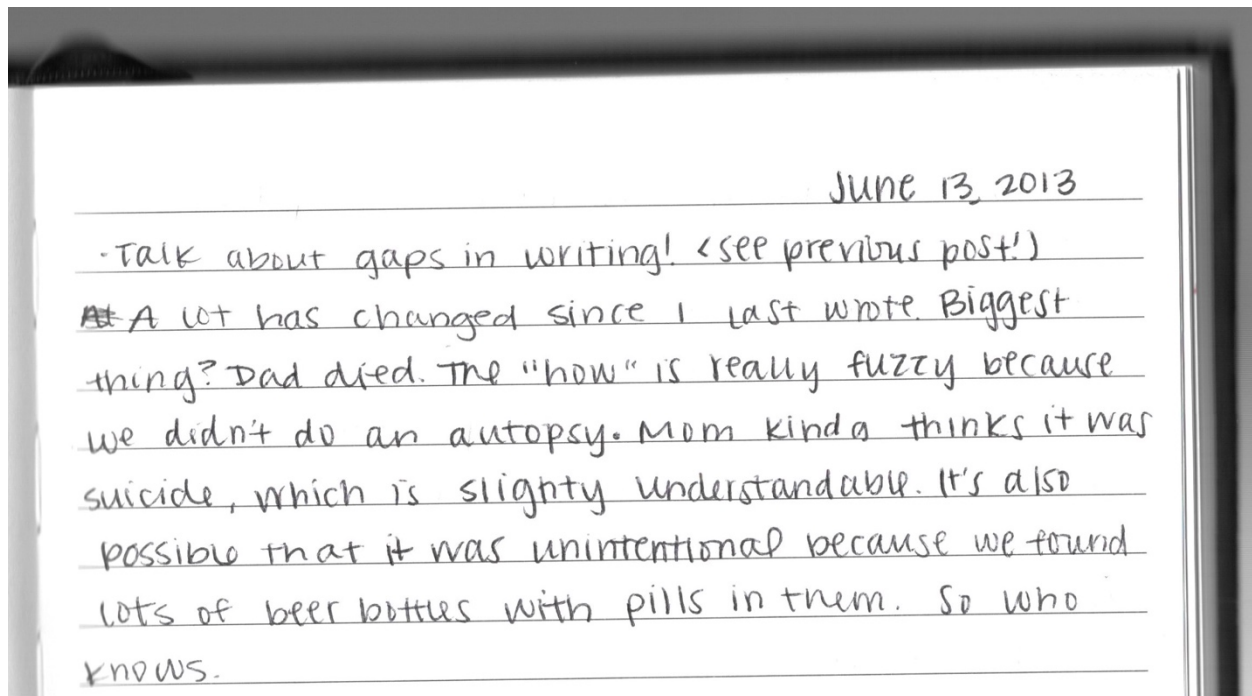 June 13, 2013
·Talk about gaps in writing! (see previous post!)
A lot has changed since I last wrote. Biggest
thing? Dad died. The "how" is really fuzzy because
we didn't do an autopsy. Mom kinda thinks it was
suicide, which is slighty understandable. It's also
possible that it was unintentional because we found
lots of beer bottles with pills in them. So who
knows.